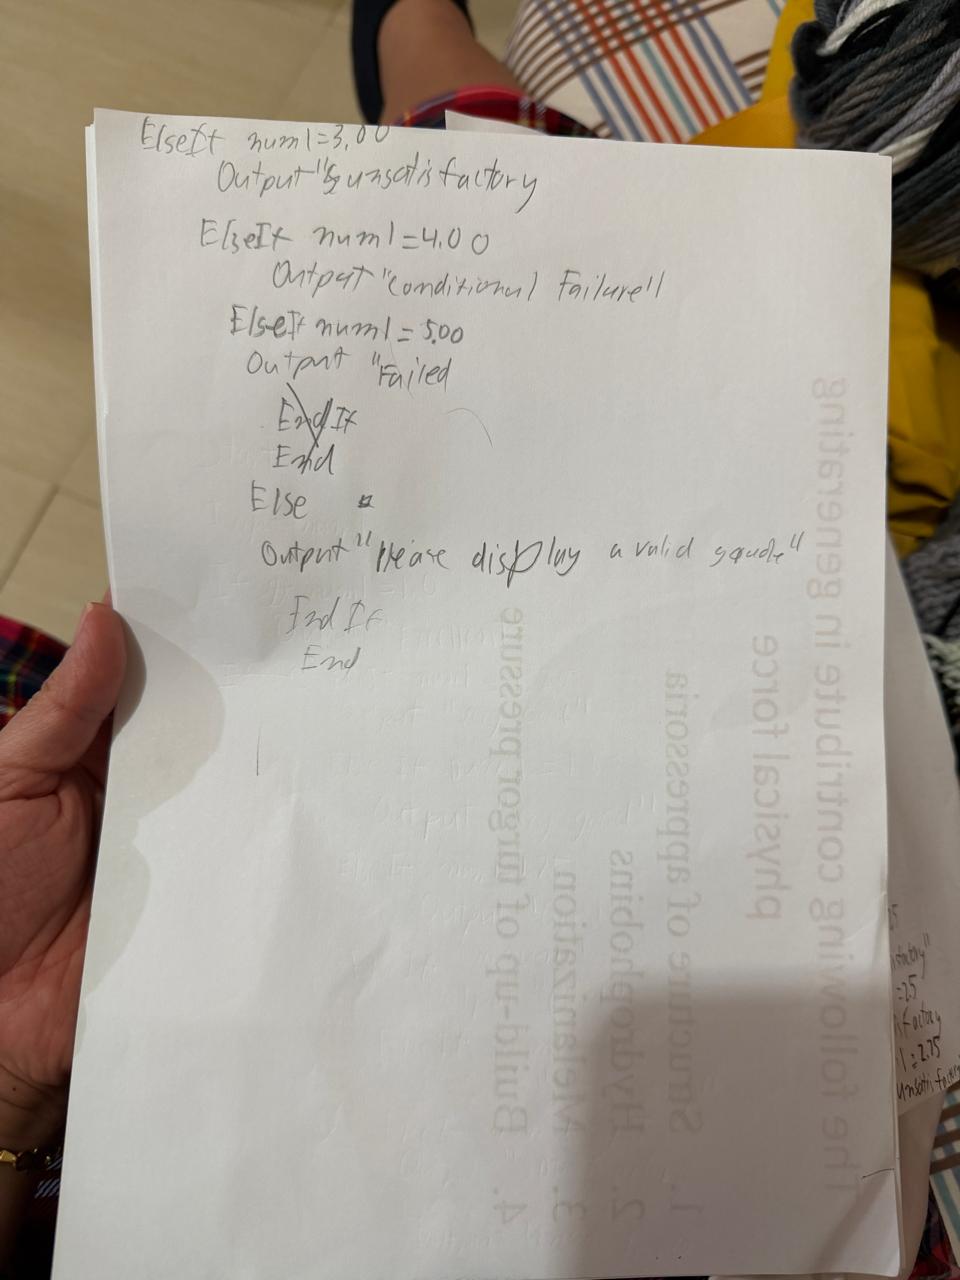 ElseIf num1=3.00
Output "unsatisfactory
ElseIf num1=4.00
Output "Conditional Failure"
ElseIf num1=5.00
Output "Failed
EndIf
End
Else
Output "Please display a valid grade"
End If
End
The following contribute in generating
physical force
1. Structure of appressoria
2. Hydrophobins
3. Melanization
4. Build-up of turgor pressure
=25
Factory
1=2.75